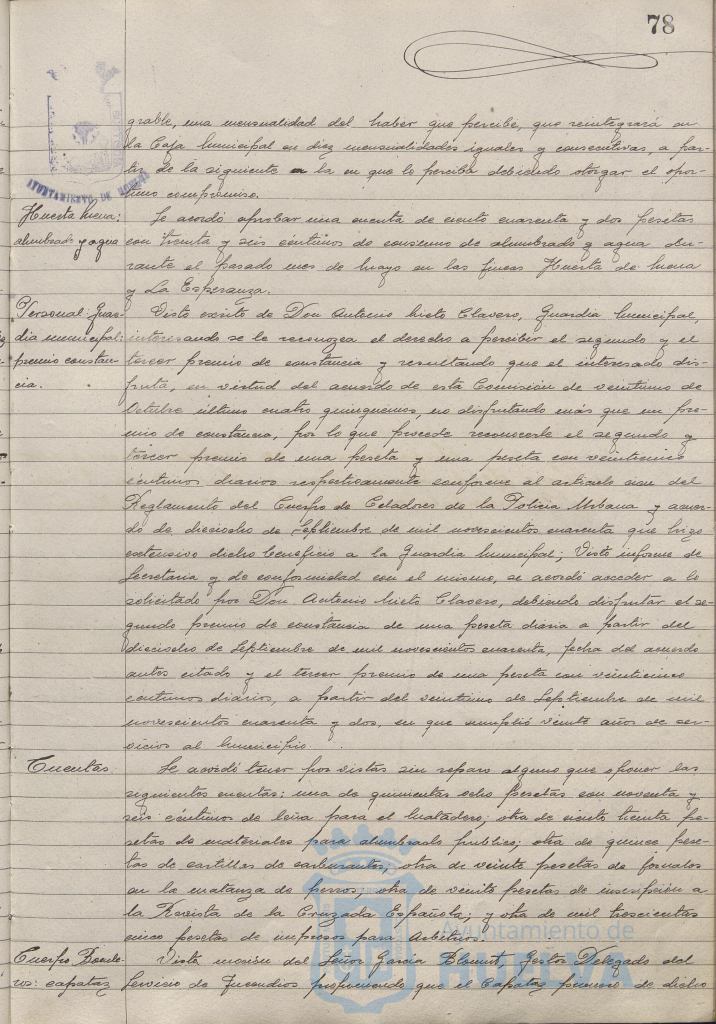 78
grable, una mensualidad del haber que percibe, que reintegrará en
la Caja Municipal en diez mensualidades iguales y consecutivas, a par-
tir de la siguiente en la en que lo perciba debiendo otorgar el opor-
tuno compromiso.
AYUNTAMIENTO DE HUELVA
Huerta Mena:
alumbrado y agua
Se acordó aprobar una cuenta de ciento cuarenta y dos pesetas
con treinta y seis céntimos de consumo de alumbrado y agua du-
rante el pasado mes de Mayo en las fincas Huerta de Mena
y La Esperanza.
Personal: Guar-
dia municipal:
premio constan-
cia.
Visto escrito de Don Antonio Nieto Clavero, Guardia Municipal,
interesando se le reconozca el derecho a percibir el segundo y el
tercer premio de constancia y resultando que el interesado dis-
fruta, en virtud del acuerdo de esta Comisión de veintiuno de
Octubre último cuatro quinquenios, no disfrutando más que un pre-
mio de constancia, por lo que procede reconocerle el segundo y
tercer premio de una peseta y una peseta con veinticinco
céntimos diarios respectivamente conforme al artículo cien del
Reglamento del Cuerpo de Celadores de la Policía Urbana y acuer-
do de dieciocho de Septiembre de mil novescientos cuarenta que hizo
extensivo dicho beneficio a la Guardia Municipal; Visto informe de
Secretaría y de conformidad con el mismo, se acordó acceder a lo
solicitado por Don Antonio Nieto Clavero, debiendo disfrutar el se-
gundo premio de constancia de una peseta diaria a partir del
dieciocho de Septiembre de mil novescientos cuarenta, fecha del acuerdo
antes citado y el tercer premio de una peseta con veinticinco
céntimos diarios, a partir del veintiuno de Septiembre de mil
novescientos cuarenta y dos, en que cumplió veinte años de ser-
vicios al Municipio.
Cuentas
Se acordó tener por vistas sin reparo alguno que oponer las
siguientes cuentas: una de quinientas ocho pesetas con noventa y
seis céntimos de leña para el Matadero; otra de ciento treinta pe-
setas de materiales para alumbrado público; otra de quince pese-
tas de cartillas de carburantes; otra de veinte pesetas de jornales
en la matanza de perros; otra de veinte pesetas de inscripción a
la Revista de la Cruzada Española; y otra de mil trescientas
cinco pesetas de impresos para Arbitrios.
Cuerpo Bombe-
ros: capataz
Vista moción del Señor García Blomet, Gestor Delegado del
Servicio de Incendios proponiendo que el Capataz primero de dicho
Ayuntamiento de
HUELVA